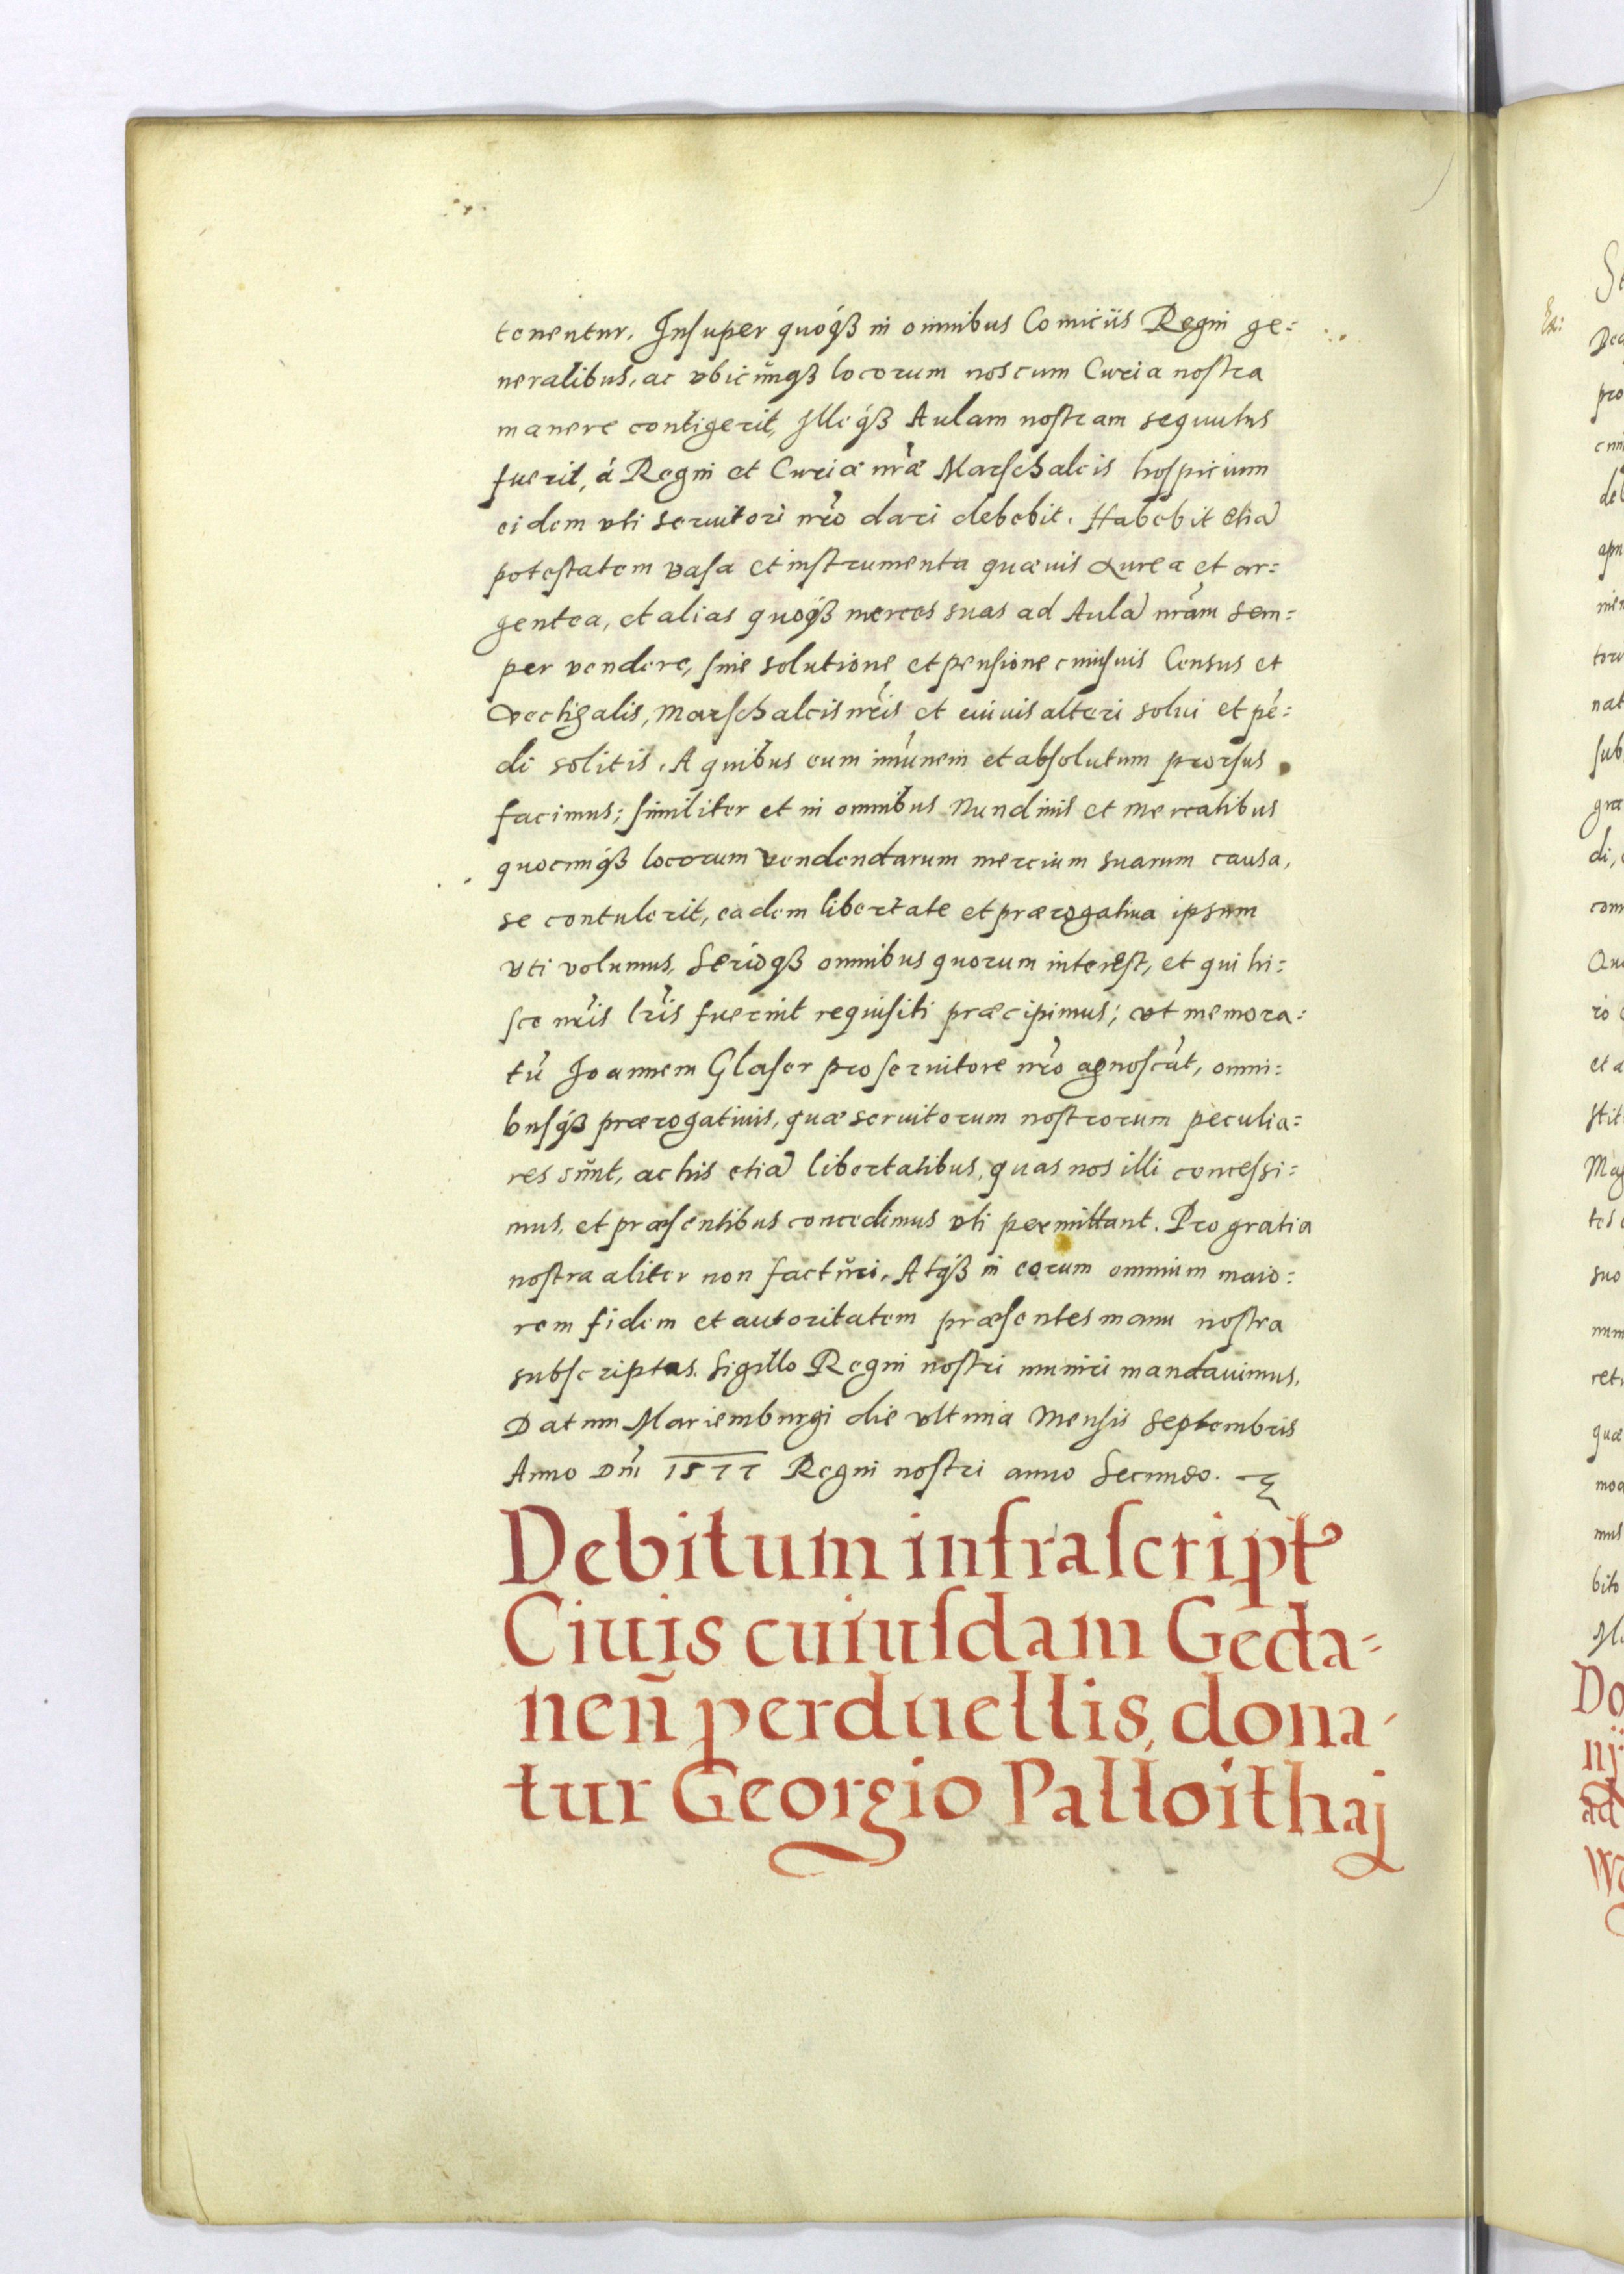 tenentur. Insuper quoq₃ in omnibus Comiciis Regni ge=
neralibus, ac vbicũnq₃ locorum nos cum Curia nostra
manere contigerit, Illeq₃ Aulam nostram sequutus
fuerit, á Regni et Curiæ nr̃æ Marschalcis hospicium
eidem vti seruitori nr̃o dari debebit. Habebit etiã
potestatem vasa et instrumenta quæuis aurea et ar=
gentea, et alias quoq₃ merces suas ad Aulã nr̃am sem=
per vendere, sine solutione et pensione cuiusuis Census et
vectigalis, Marschalcis nr̃is et cuiuis alteri solui et pẽ=
di solitis. A quibus eum im̃unem et absolutum prorsus
facimus; similiter et in omnibus Nundinis et mercatibus
quocunq₃ locorum vendendarum mercium suarum causa,
se contulerit, eadem libertate et prærogatiua ipsum
vti volumus, Serioq₃ omnibus quorum interest, et qui hi=
sce nr̃is lr̃is fuerint requisiti præcipimus; vt memora=
tũ Joannem Glaser pro seruitore nr̃o agnoscãt, omni=
busq₃ prærogatiuis, quæ seruitorum nostrorum peculia=
res sũnt, ac his etiã libertatibus, quas nos illi concessi=
mus, et præsentibus concedimus vti permittant. Pro gratia
nostra aliter non factũri. Atq₃ in eorum omnium maio=
rem fidem et autoritatem præsentes manu nostra
subscriptas. Sigillo Regni nostri muniri mandauimus.
Datum Mariemburgi die vltima Mensis Septembris
Anno Dn̄i 1577 Regni nostri anno Secundo.
Debitum infrascript
Ciuis cuiusdam Geda=
nen̄ perduellis, dona=
tur Georgio Palloithaj